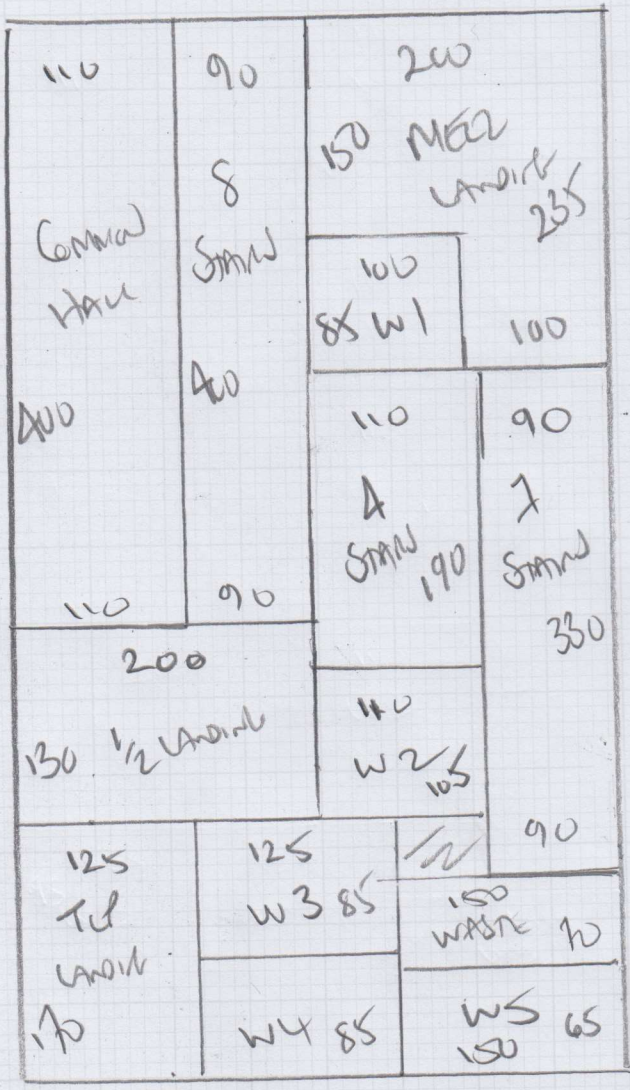 110
COMMON
HALL
400
110
90
8
STAIRS
400
90
200
150 MEZZ
LANDING
235
100
85 W1
100
110
4
STAIRS 190
90
7
STAIRS
330
90
200
130 1/2 LANDING
110
W2 105
125
TOP
LANDING
170
125
W3 85
W4 85
150
WASTE 70
W5 65
150